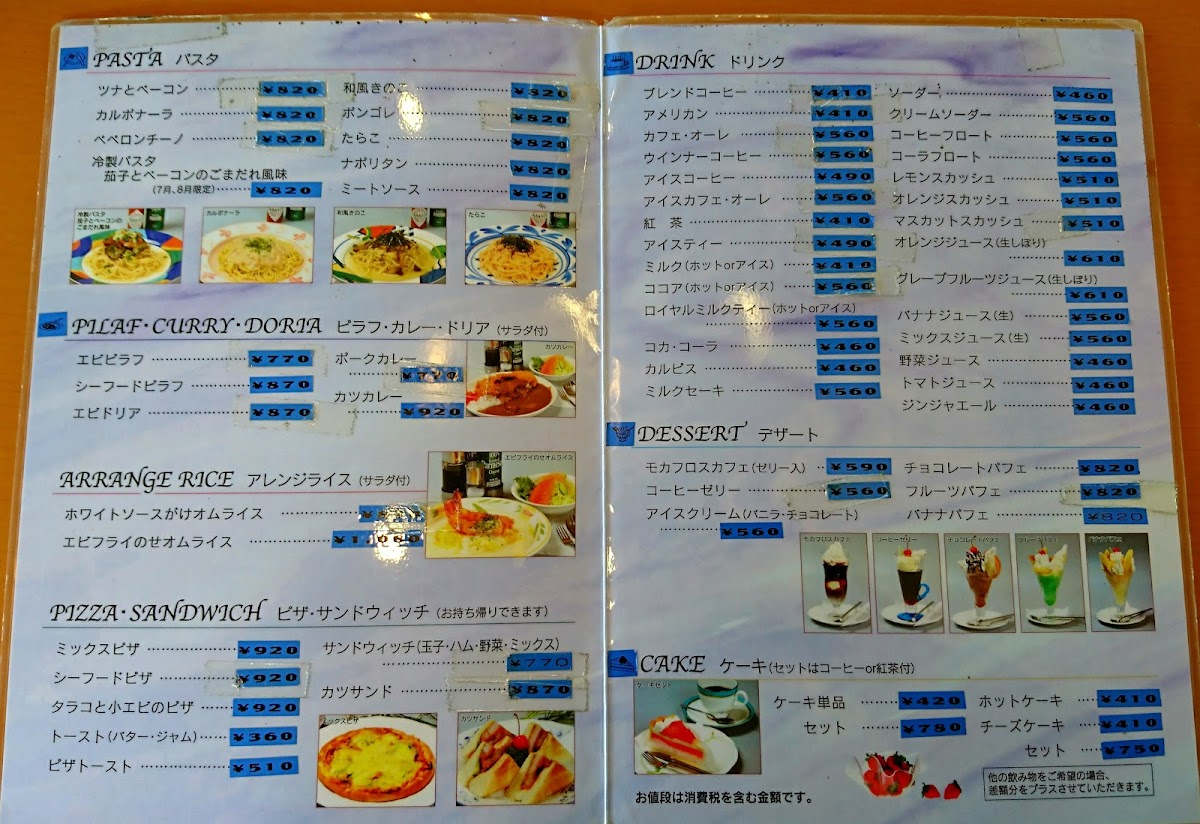 PASTA パスタ
ツナとベーコン ¥820
カルボナーラ ¥820
ペペロンチーノ ¥820
冷製パスタ
茄子とベーコンのごまだれ風味
(7月、8月限定) ¥820
和風きのこ ¥820
ボンゴレ ¥820
たらこ ¥820
ナポリタン ¥820
ミートソース ¥820
冷製パスタ
茄子とベーコンの
ごまだれ風味
カルボナーラ
和風きのこ
たらこ
PILAF・CURRY・DORIA ピラフ・カレー・ドリア (サラダ付)
エビピラフ ¥770
シーフードピラフ ¥870
エビドリア ¥870
ポークカレー
カツカレー
¥920
カツカレー
ARRANGE RICE アレンジライス (サラダ付)
ホワイトソースがけオムライス
エビフライのせオムライス ¥1,060
エビフライのせオムライス
PIZZA・SANDWICH ピザ・サンドウィッチ (お持ち帰りできます)
ミックスピザ ¥920
シーフードピザ ¥920
タラコと小エビのピザ ¥920
トースト(バター・ジャム) ¥360
ピザトースト ¥510
サンドウィッチ(玉子・ハム・野菜・ミックス)
¥770
カツサンド ¥870
ミックスピザ
カツサンド
DRINK ドリンク
ブレンドコーヒー ¥410
アメリカン ¥410
カフェ・オーレ ¥560
ウインナーコーヒー ¥560
アイスコーヒー ¥490
アイスカフェ・オーレ ¥560
紅 茶 ¥410
アイスティー ¥490
ミルク(ホットorアイス) ¥410
ココア(ホットorアイス) ¥560
ロイヤルミルクティー(ホットorアイス)
¥560
コカ・コーラ ¥460
カルピス ¥460
ミルクセーキ ¥560
ソーダー ¥460
クリームソーダー ¥560
コーヒーフロート ¥560
コーラフロート ¥560
レモンスカッシュ ¥510
オレンジスカッシュ ¥510
マスカットスカッシュ ¥510
オレンジジュース(生しぼり)
¥610
グレープフルーツジュース(生しぼり)
¥610
バナナジュース(生) ¥560
ミックスジュース(生) ¥560
野菜ジュース ¥460
トマトジュース ¥460
ジンジャエール ¥460
DESSERT デザート
モカフロスカフェ(ゼリー入) ¥590
コーヒーゼリー ¥560
アイスクリーム(バニラ・チョコレート)
¥560
チョコレートパフェ ¥820
フルーツパフェ ¥820
バナナパフェ ¥820
モカフロスカフェ
コーヒーゼリー
チョコレートパフェ
フルーツパフェ
バナナパフェ
CAKE ケーキ(セットはコーヒーor紅茶付)
ケーキセット
ケーキ単品 ¥420
セット ¥780
ホットケーキ ¥410
チーズケーキ ¥410
セット ¥750
お値段は消費税を含む金額です。
他の飲み物をご希望の場合、
差額分をプラスさせていただきます。